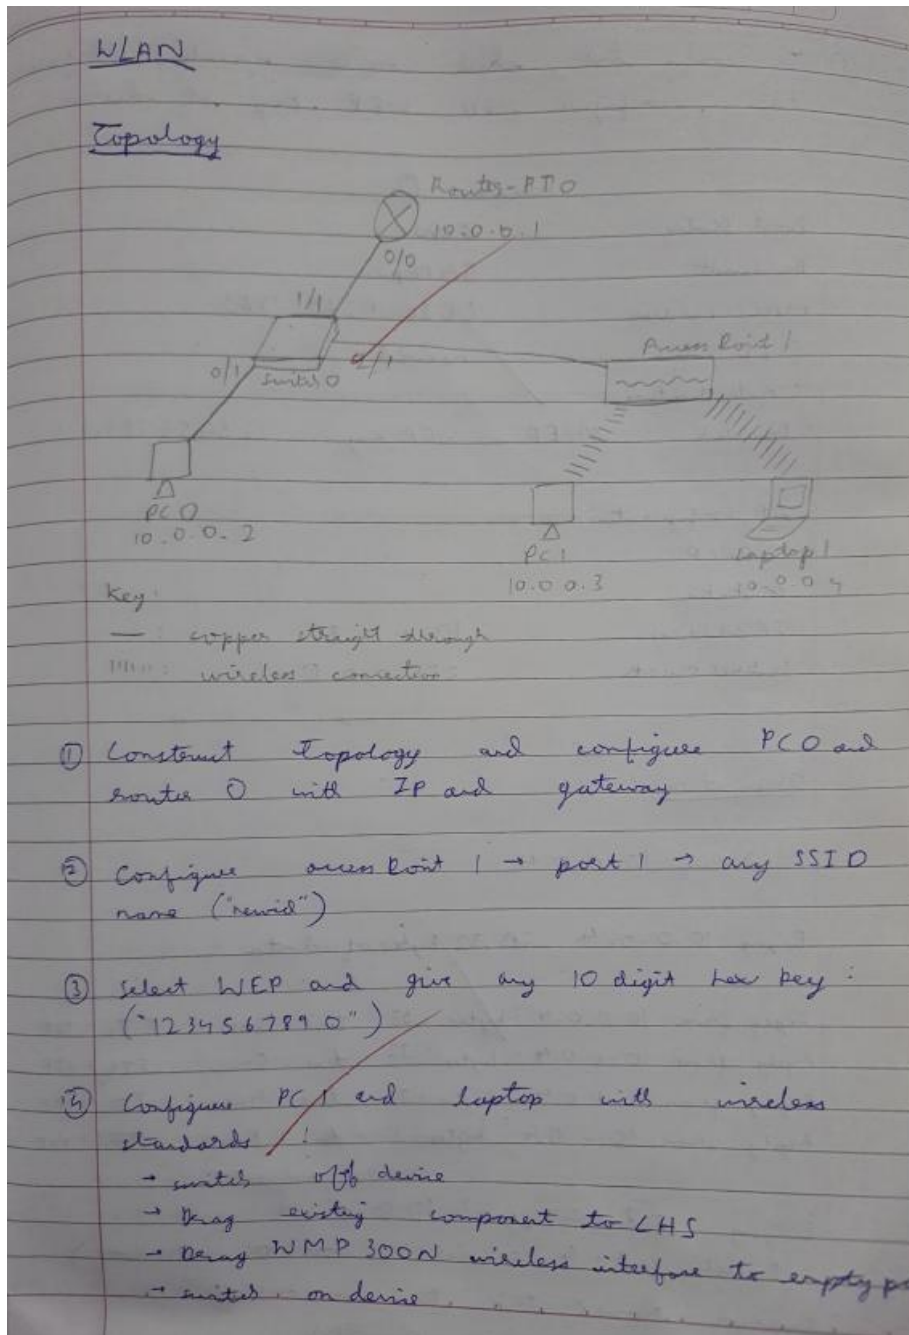 WLAN
Topology
Router-PT0
10.0.0.1
0/0
1/1
Access Point 1
0/1
2/1
Switch 0
PC0
10.0.0.2
PC1
10.0.0.3
Laptop 1
10.0.0.4
Key:
— : copper straight through
||||| : wireless connection
① Construct Topology and configure PC0 and
router 0 with IP and gateway
② Configure access Point 1 → port 1 → any SSID
name ("newid")
③ Select WEP and give any 10 digit hex key :
("1234567890")
④ Configure PC1 and laptop with wireless
standards !
→ switch off device
→ Drag existing component to LHS
→ Drag WMP 300N wireless interface to empty
→ switch on device